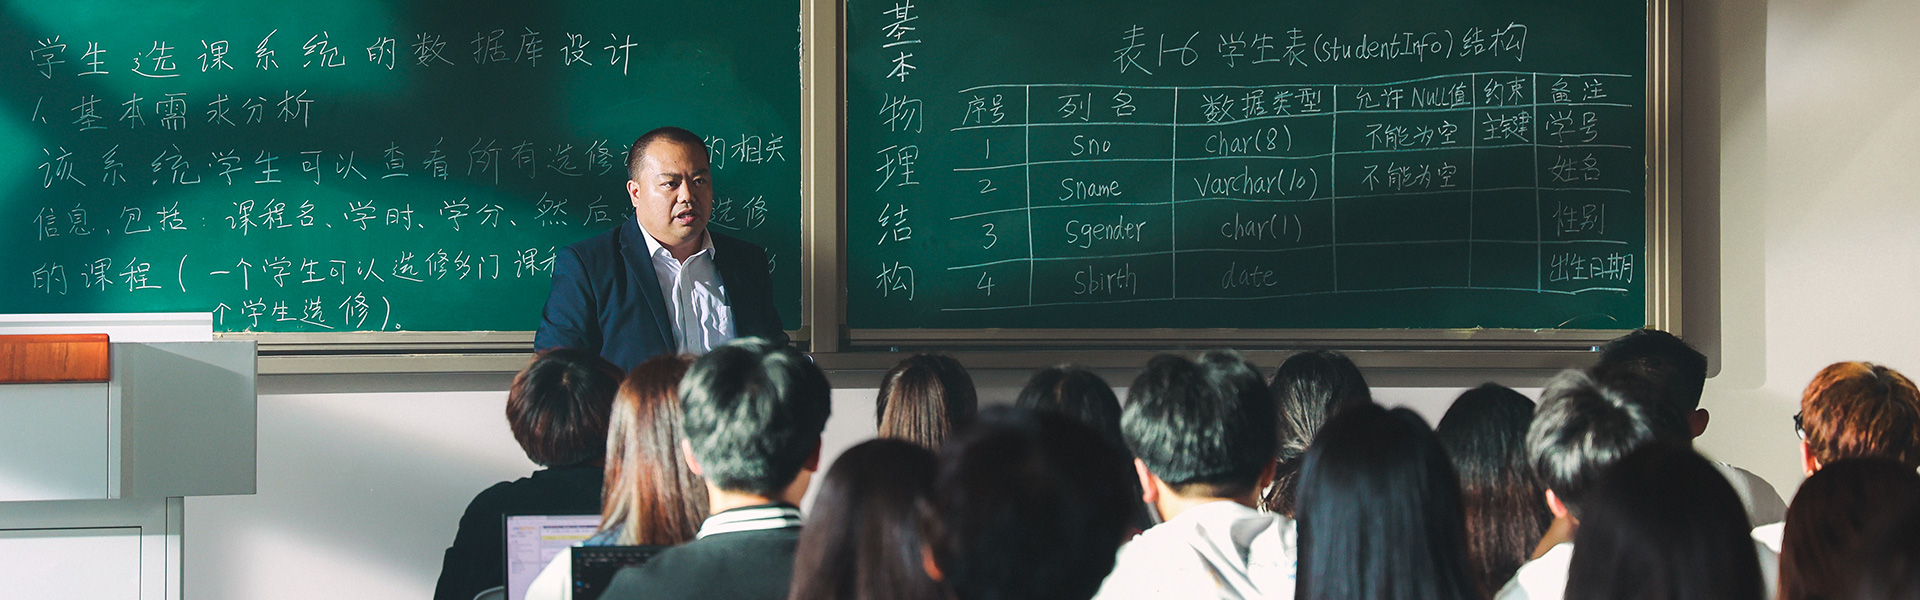 学生选课系统的数据库设计
1、基本需求分析
该系统学生可以查看所有选修 的相关
信息、包括：课程名、学时、学分、然后 选修
的课程（一个学生可以选修多门课程
个学生选修）。
基本物理结构
表1-6 学生表(studentInfo)结构
序号 列名 数据类型 允许NULL值 约束 备注
1 Sno char(8) 不能为空 主键 学号
2 Sname varchar(10) 不能为空 姓名
3 Sgender char(1) 性别
4 Sbirth date 出生日期